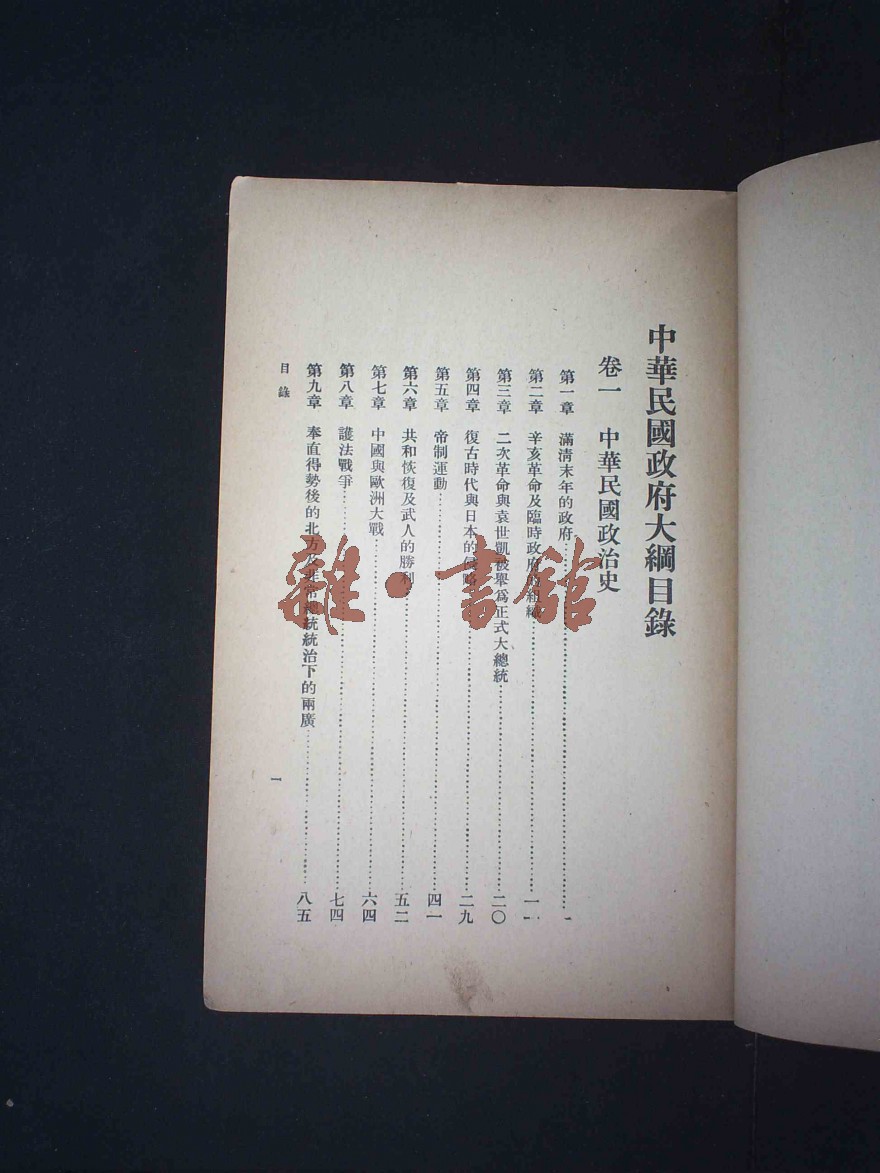 中華民國政府大綱目錄
卷一 中華民國政治史
第一章 滿清末年的政府……一
第二章 辛亥革命及臨時政府的組織……一一
第三章 二次革命與袁世凱被舉爲正式大總統……二〇
第四章 復古時代與日本的侵略……二九
第五章 帝制運動……四一
第六章 共和恢復及武人的勝利……五二
第七章 中國與歐洲大戰……六四
第八章 護法戰爭……七四
第九章 奉直得勢後的北方及非常總統統治下的兩廣……八五
目錄
一
雜·書館